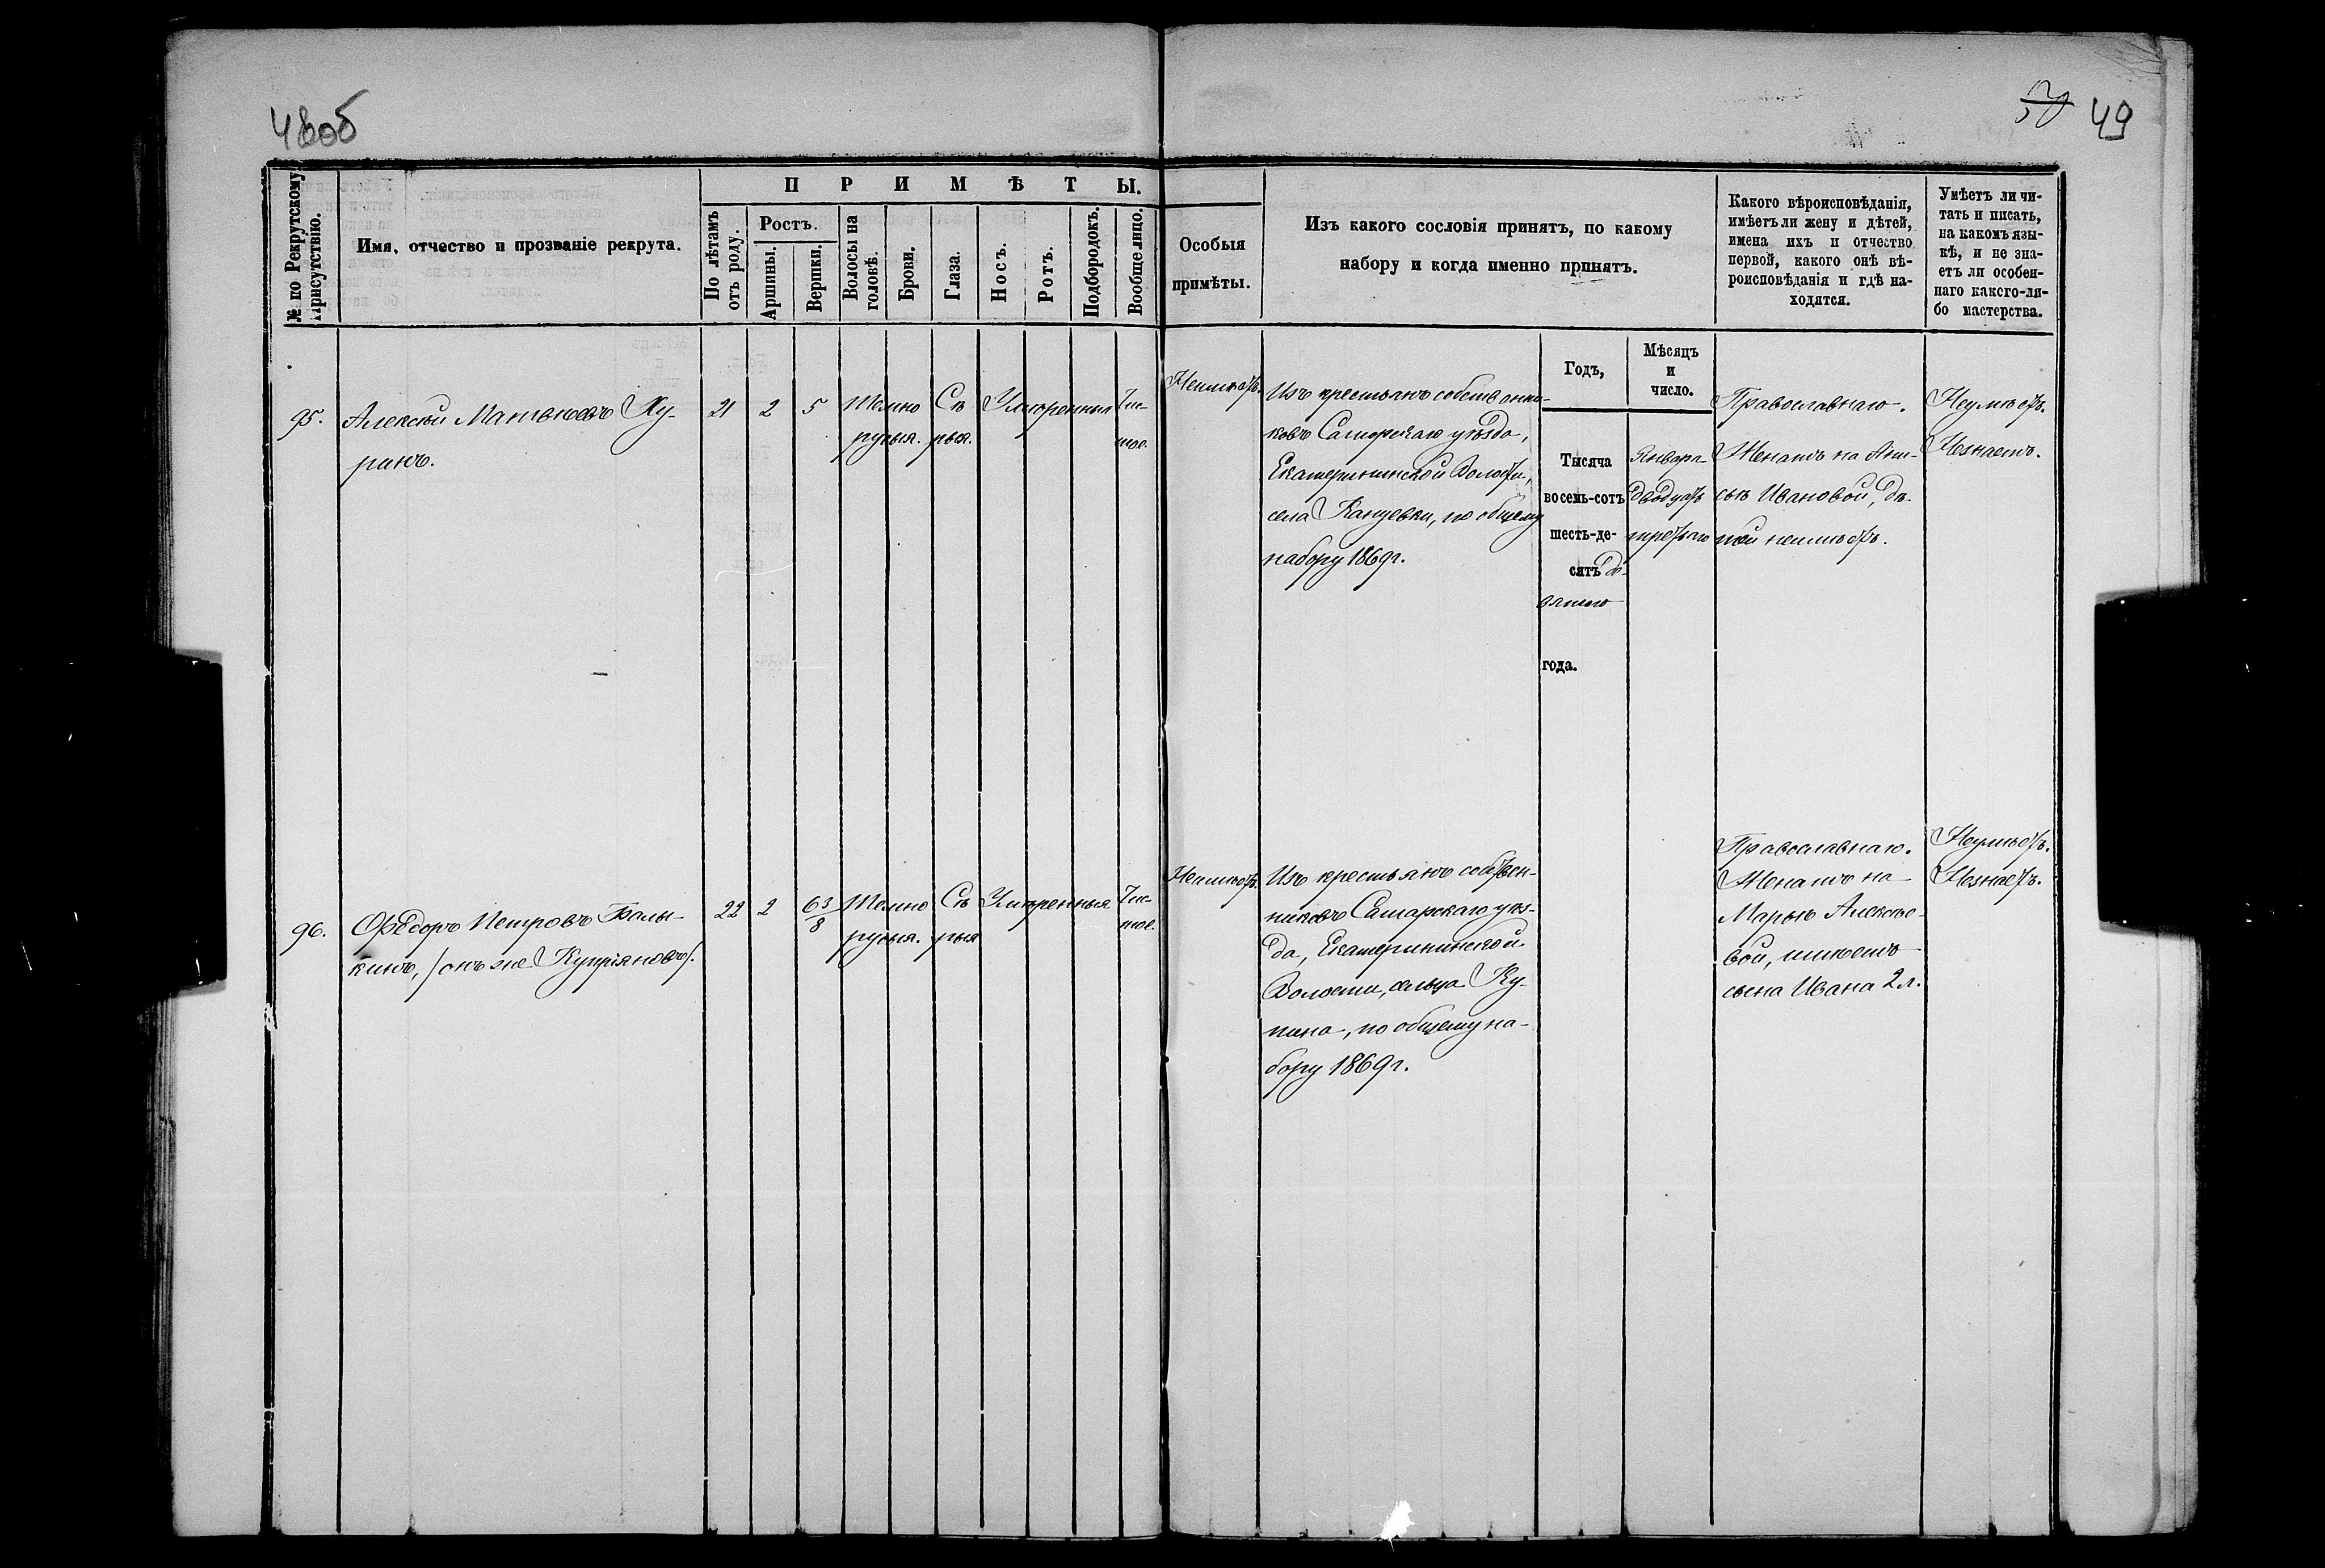 48об
50 49
№ по Рекрутскому
Присутствію.
Имя, отчество и прозваніе рекрута.
ПРИМѢТЫ.
По лѣтамъ
отъ роду.
Ростъ.
Аршины.
Вершки.
Волосы на
головѣ.
Брови.
Глаза.
Носъ.
Ротъ.
Подбородокъ.
Вообще лицо.
Особыя
примѣты.
Изъ какого сословія принятъ, по какому
набору и когда именно принятъ.
Какого вѣроисповѣданія,
имѣетъ ли жену и дѣтей,
имена ихъ и отчество
первой, какого онѣ вѣ-
роисповѣданія и гдѣ на-
ходятся.
Умѣетъ ли чи-
тать и писать,
на какомъ язы-
кѣ, и не зна-
етъ ли особен-
наго какого-ли-
бо мастерства.
Годъ,
Мѣсяцъ
и
число.
95.
Алексѣй Матвѣевъ Ку-
ринъ.
21 2 5
Темно
русыя.
Сѣ
рыя.
Умѣренныя
Чи-
стое.
Неимѣетъ.
Изъ крестьянъ собственни-
ковъ Самарскаго уѣзда,
Екатерининской Волости,
села Кануевки, по общему
набору 1869 г.
Тысяча
восемь-сотъ
шесть-де-
сятъ де-
вятаго
года.
Января
двадцать
третьяго
Православнаго.
Женатъ на Ани-
сьѣ Ивановой, дѣ-
тей неимѣетъ.
Неумѣетъ.
Незнаетъ.
96.
Ѳедоръ Петровъ Балы-
кинъ, /онъ же Купріяновъ/.
22 2 6 3/8
Темно
русыя.
Сѣ
рыя
Умѣренныя
Чи-
стое.
Неимѣетъ.
Изъ крестьянъ собствен-
никовъ Самарскаго уѣз-
да, Екатерининской
Волости, сельца Ку-
пина, по общему на-
бору 1869 г.
Православнаго.
Женатъ на
Марьѣ Алексѣе-
вой, имѣетъ
сына Ивана 2 л.
Неумѣетъ.
Незнаетъ.